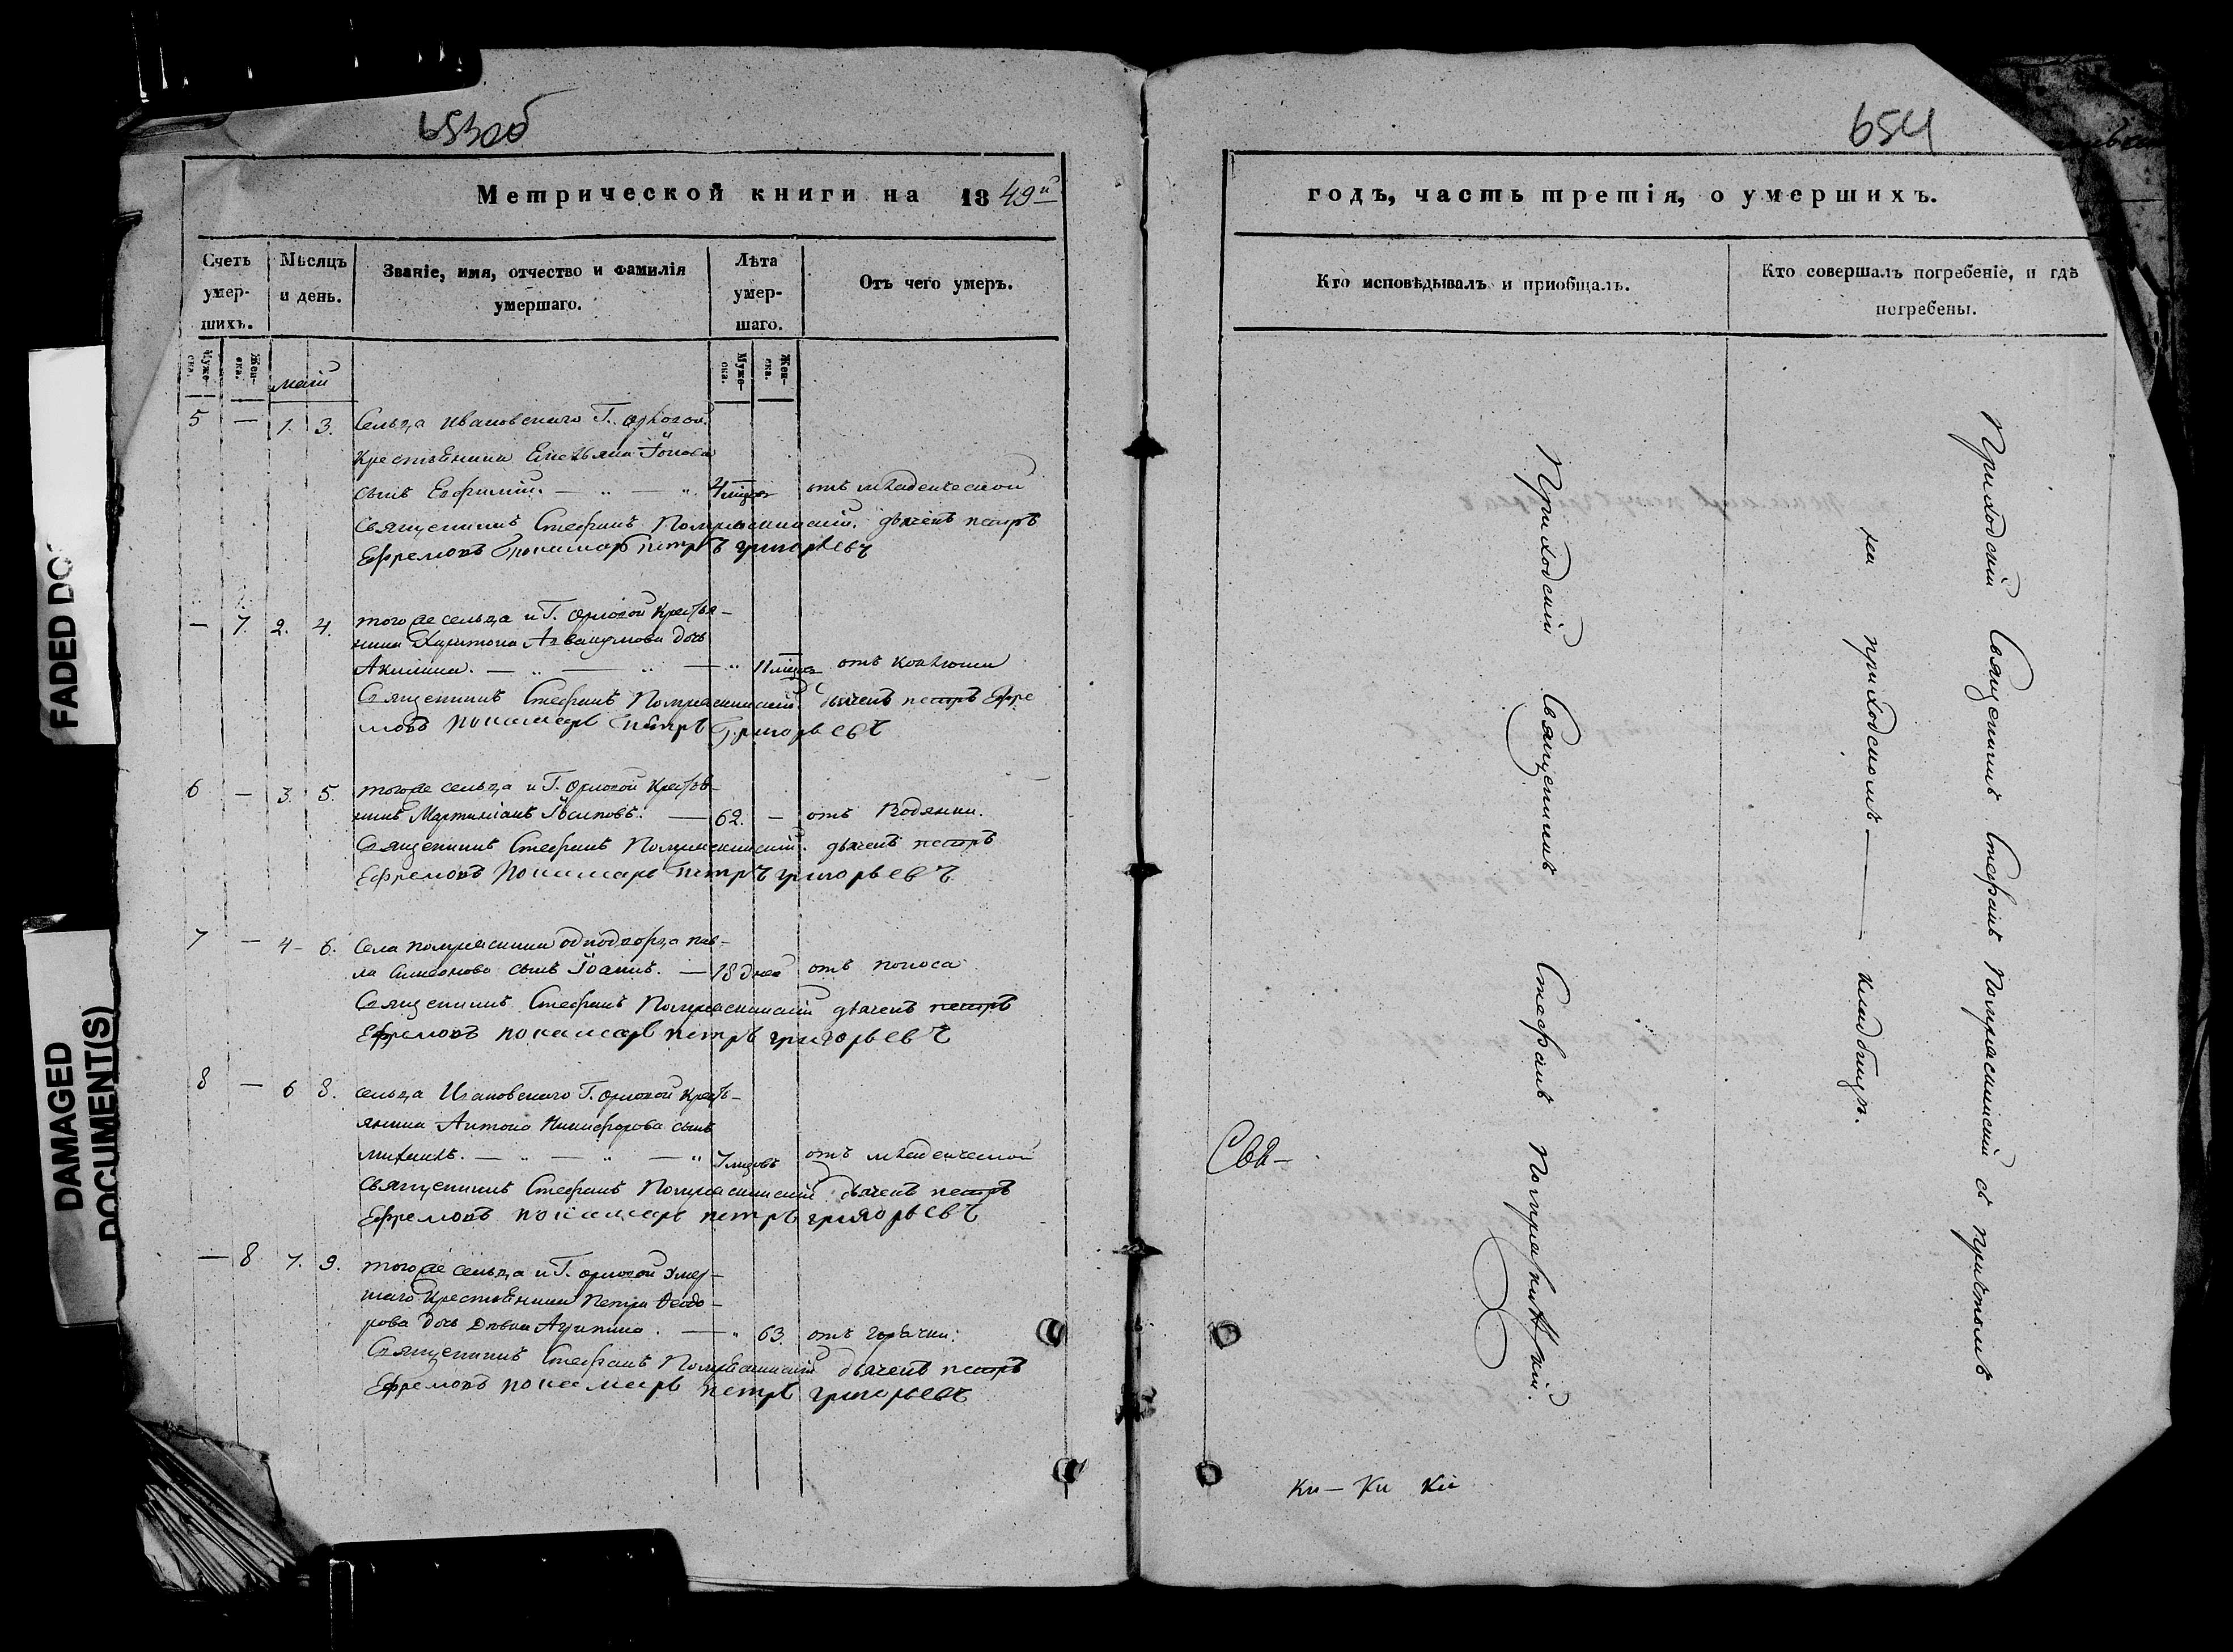 653об
Метрической книги на 1849й
Счетъ умер-шихъ.
Мѣсяцъ и день.
Званіе, имя, отчество и фамилія умершаго.
Лѣта умер-шаго.
Отъ чего умеръ.
Муже-ска.
Жен-ска.
Муже-ска.
Жен-ска.
маій
5 — 1. 3. Сельца Ивановскаго Г. Орловой
крестьянина Емельяна
сынъ Евфимій. — " — " 4 отъ младенческой
Священникъ Стефанъ дьячекъ петръ
Ефремовъ пономарь петръ григорьевъ
— 7. 2. 4. тогоже сельца и Г. Орловой крестья-
нина Харитона Аввакумова дочь
Акилина. — " — " — " 11 отъ коклюша
Священникъ Стефанъ дьячекъ петръ Ефре
мовъ пономарь петръ Григорьевъ
6 — 3. 5. тогоже сельца и Г. Орловой крестья-
нинъ Мартиніанъ — 62. — отъ Водянки.
Священникъ Стефанъ дьячекъ петръ
Ефремовъ пономарь петръ григорьевъ
7 — 4 - 6. Села однодворца пав-
ла Симеонова сынъ Іоаннъ. — 18 дней отъ поноса
Священникъ Стефанъ дьячекъ петръ
Ефремовъ пономарь петръ григорьевъ
8 — 6 8. сельца Ивановскаго Г. Орловой кресть-
янина Антона Никифорова сынъ
михаилъ. — " — " — " 7 отъ младенческой
Священникъ Стефанъ дьячекъ петръ
Ефремовъ пономарь петръ григорьевъ
— 8. 7. 9. тогоже сельца и Г. Орловой умер-
шаго крестьянина Петра Ѳеодо-
рова дочь Девка Агрипина. — " 63 отъ горячки.
Священникъ Стефанъ дьячекъ петръ
Ефремовъ пономарь петръ григорьевъ
654
годъ, часть третія, о умершихъ.
Кто исповѣдывалъ и приобщалъ.
Кто совершалъ погребеніе, и гдѣ погребены.
Приходскій Священникъ Стефанъ
Приходскій Священникъ Стефанъ съ причтомъ
на приходскомъ — кладбищѣ.
Ки — Ки Ки
FADED DO
DAMAGED
DOCUMENT(S)